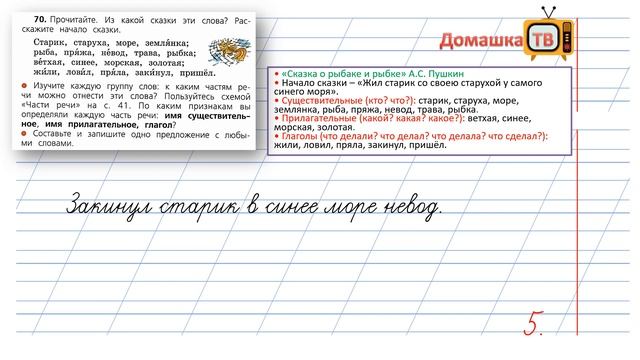 70. Прочитайте. Из какой сказки эти слова? Рас-
скажите начало сказки.
Старик, старуха, море, земля́нка;
рыба, пряжа, не́вод, трава, рыбка;
ве́тхая, синее, морская, золотая;
жи́ли, лови́л, пря́ла, заки́нул, пришёл.
• Изучите каждую группу слов: к каким частям ре-
чи можно отнести эти слова? Пользуйтесь схемой
«Части речи» на с. 41. По каким признакам вы
определяли каждую часть речи: имя существитель-
ное, имя прилагательное, глагол?
• Составьте и запишите одно предложение с любы-
ми словами.
Домашка ТВ
• «Сказка о рыбаке и рыбке» А.С. Пушкин
• Начало сказки – «Жил старик со своею старухой у самого
синего моря».
• Существительные (кто? что?): старик, старуха, море,
землянка, рыба, пряжа, невод, трава, рыбка.
• Прилагательные (какой? какая? какое?): ветхая, синее,
морская, золотая.
• Глаголы (что делали? что делал? что делала? что сделал?):
жили, ловил, пряла, закинул, пришёл.
Закинул старик в синее море невод.
5.